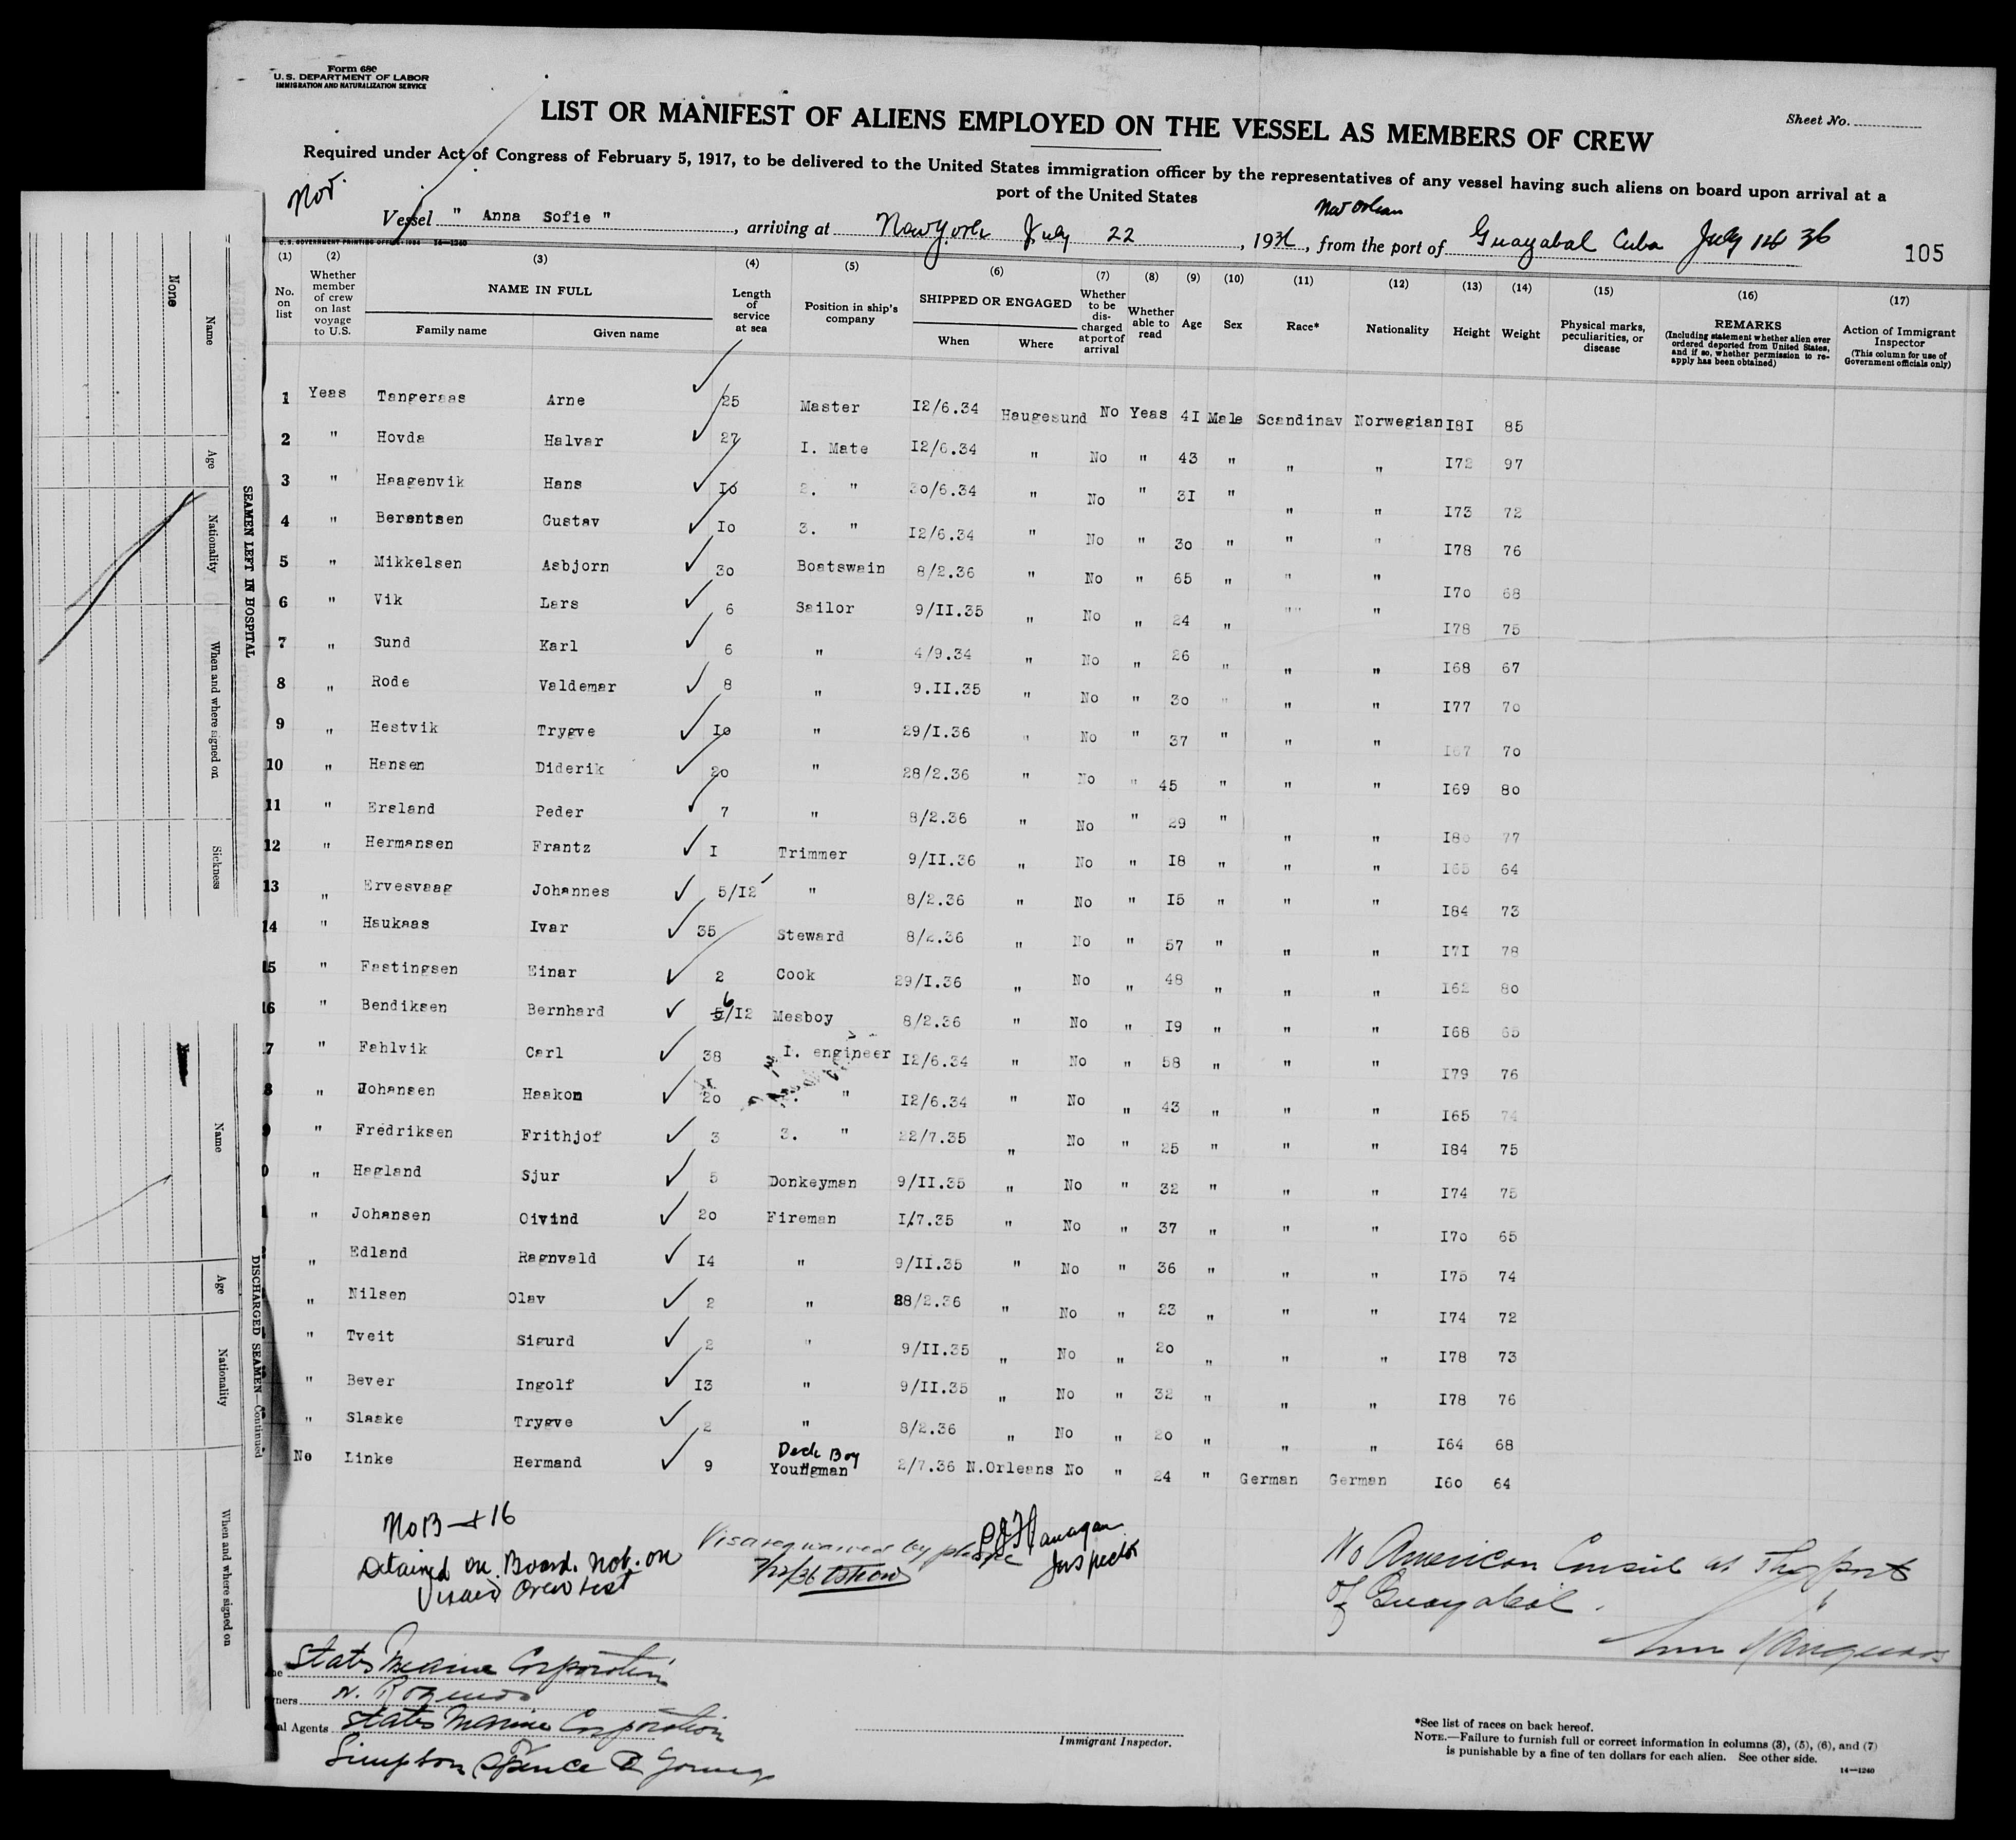 Form 680
U.S. DEPARTMENT OF LABOR
IMMIGRATION AND NATURALIZATION SERVICE
LIST OR MANIFEST OF ALIENS EMPLOYED ON THE VESSEL AS MEMBERS OF CREW
Sheet No.
Required under Act of Congress of February 5, 1917, to be delivered to the United States immigration officer by the representatives of any vessel having such aliens on board upon arrival at a
port of the United States
Nor.
Vessel " Anna Sofie ", arriving at New York July 22, 1936, from the port of Guayabal Cuba July 14 36
New Orleans
U.S. GOVERNMENT PRINTING OFFICE: 1934 14—1240
105
(1) (2) (3) (4) (5) (6) (7) (8) (9) (10) (11) (12) (13) (14) (15) (16) (17)
No. on list
Whether member of crew on last voyage to U.S.
NAME IN FULL
Family name Given name
Length of service at sea
Position in ship's company
SHIPPED OR ENGAGED
When Where
Whether to be discharged at port of arrival
Whether able to read
Age Sex Race* Nationality Height Weight
Physical marks, peculiarities, or disease
REMARKS
(Including statement whether alien ever ordered deported from United States, and if so, whether permission to re-apply has been obtained)
Action of Immigrant Inspector
(This column for use of Government officials only)
1 Yeas Tangeraas Arne 25 Master I2/6.34 Haugesund No Yeas 4I Male Scandinav Norwegian I8I 85
2 " Hovda Halvar 27 I. Mate I2/6.34 " No " 43 " " " I72 97
3 " Haagenvik Hans Io 2. " 30/6.34 " No " 3I " " " I73 72
4 " Berentsen Gustav Io 3. " I2/6.34 " No " 3o " " " I78 76
5 " Mikkelsen Asbjorn 3o Boatswain 8/2.36 " No " 65 " " " I7o 68
6 " Vik Lars 6 Sailor 9/II.35 " No " 24 " "" " I78 75
7 " Sund Karl 6 " 4/9.34 " No " 26 " " " I68 67
8 " Rode Valdemar 8 " 9.II.35 " No " 3o " " " I77 7o
9 " Hestvik Trygve Io " 29/I.36 " No " 37 " " " I67 7o
10 " Hansen Diderik 2o " 28/2.36 " No " 45 " " " I69 8o
11 " Ersland Peder 7 " 8/2.36 " No " 29 " " " I8o 77
12 " Hermansen Frantz I Trimmer 9/II.36 " No " I8 " " " I65 64
13 " Ervesvaag Johannes 5/I2 " 8/2.36 " No " I5 " " " I84 73
14 " Haukaas Ivar 35 Steward 8/2.36 " No " 57 " " " I7I 78
15 " Fastingsen Einar 2 Cook 29/I.36 " No " 48 " " " I62 8o
16 " Bendiksen Bernhard 6/I2 Mesboy 8/2.36 " No " I9 " " " I68 65
7 " Fahlvik Carl 38 I. engineer I2/6.34 " No " 58 " " " I79 76
8 " Johansen Haakon 2o " I2/6.34 " No " 43 " " " I65 74
9 " Fredriksen Frithjof 3 3. " 22/7.35 " No " 25 " " " I84 75
0 " Hagland Sjur 5 Donkeyman 9/II.35 " No " 32 " " " I74 75
" Johansen Oivind 2o Fireman I/7.35 " No " 37 " " " I7o 65
" Edland Ragnvald I4 " 9/II.35 " No " 36 " " " I75 74
" Nilsen Olav 2 " 28/2.36 " No " 23 " " " I74 72
" Tveit Sigurd 2 " 9/II.35 " No " 2o " " " I78 73
" Bever Ingolf I3 " 9/II.35 " No " 32 " " " I78 76
" Slaake Trygve 2 " 8/2.36 " No " 2o " " " I64 68
Deck Boy
No Linke Hermand 9 Youngman 2/7.36 N.Orleans No " 24 " German German I6o 64
No 13 + 16
Detained on Board. not on
Visaed Crew List
Visa waived by
7/22/36
Flanagan
Inspector
No American Consul at the port
of Guayabal.
States Marine Corporation
ners
al Agents States Marine Corporation
Simpson Spence & Young
Immigrant Inspector.
*See list of races on back hereof.
NOTE.—Failure to furnish full or correct information in columns (3), (5), (6), and (7)
is punishable by a fine of ten dollars for each alien. See other side.
14—1240
SEAMEN LEFT IN HOSPITAL
None
Name
Age
Nationality
When and where signed on
Sickness
DISCHARGED SEAMEN—Continued
None
Name
Age
Nationality
When and where signed on